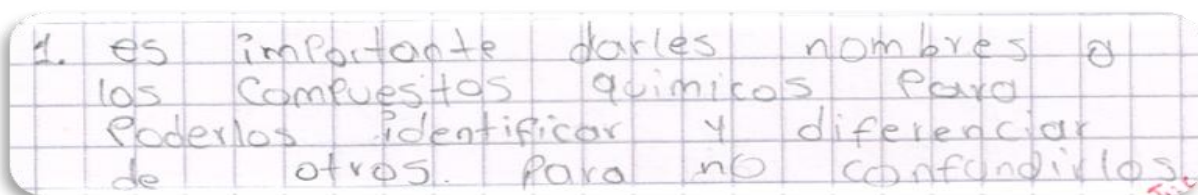 1. es importante darles nombres a
los compuestos quimicos para
Poderlos identificar y diferenciar
de otros. Para no confundirlos